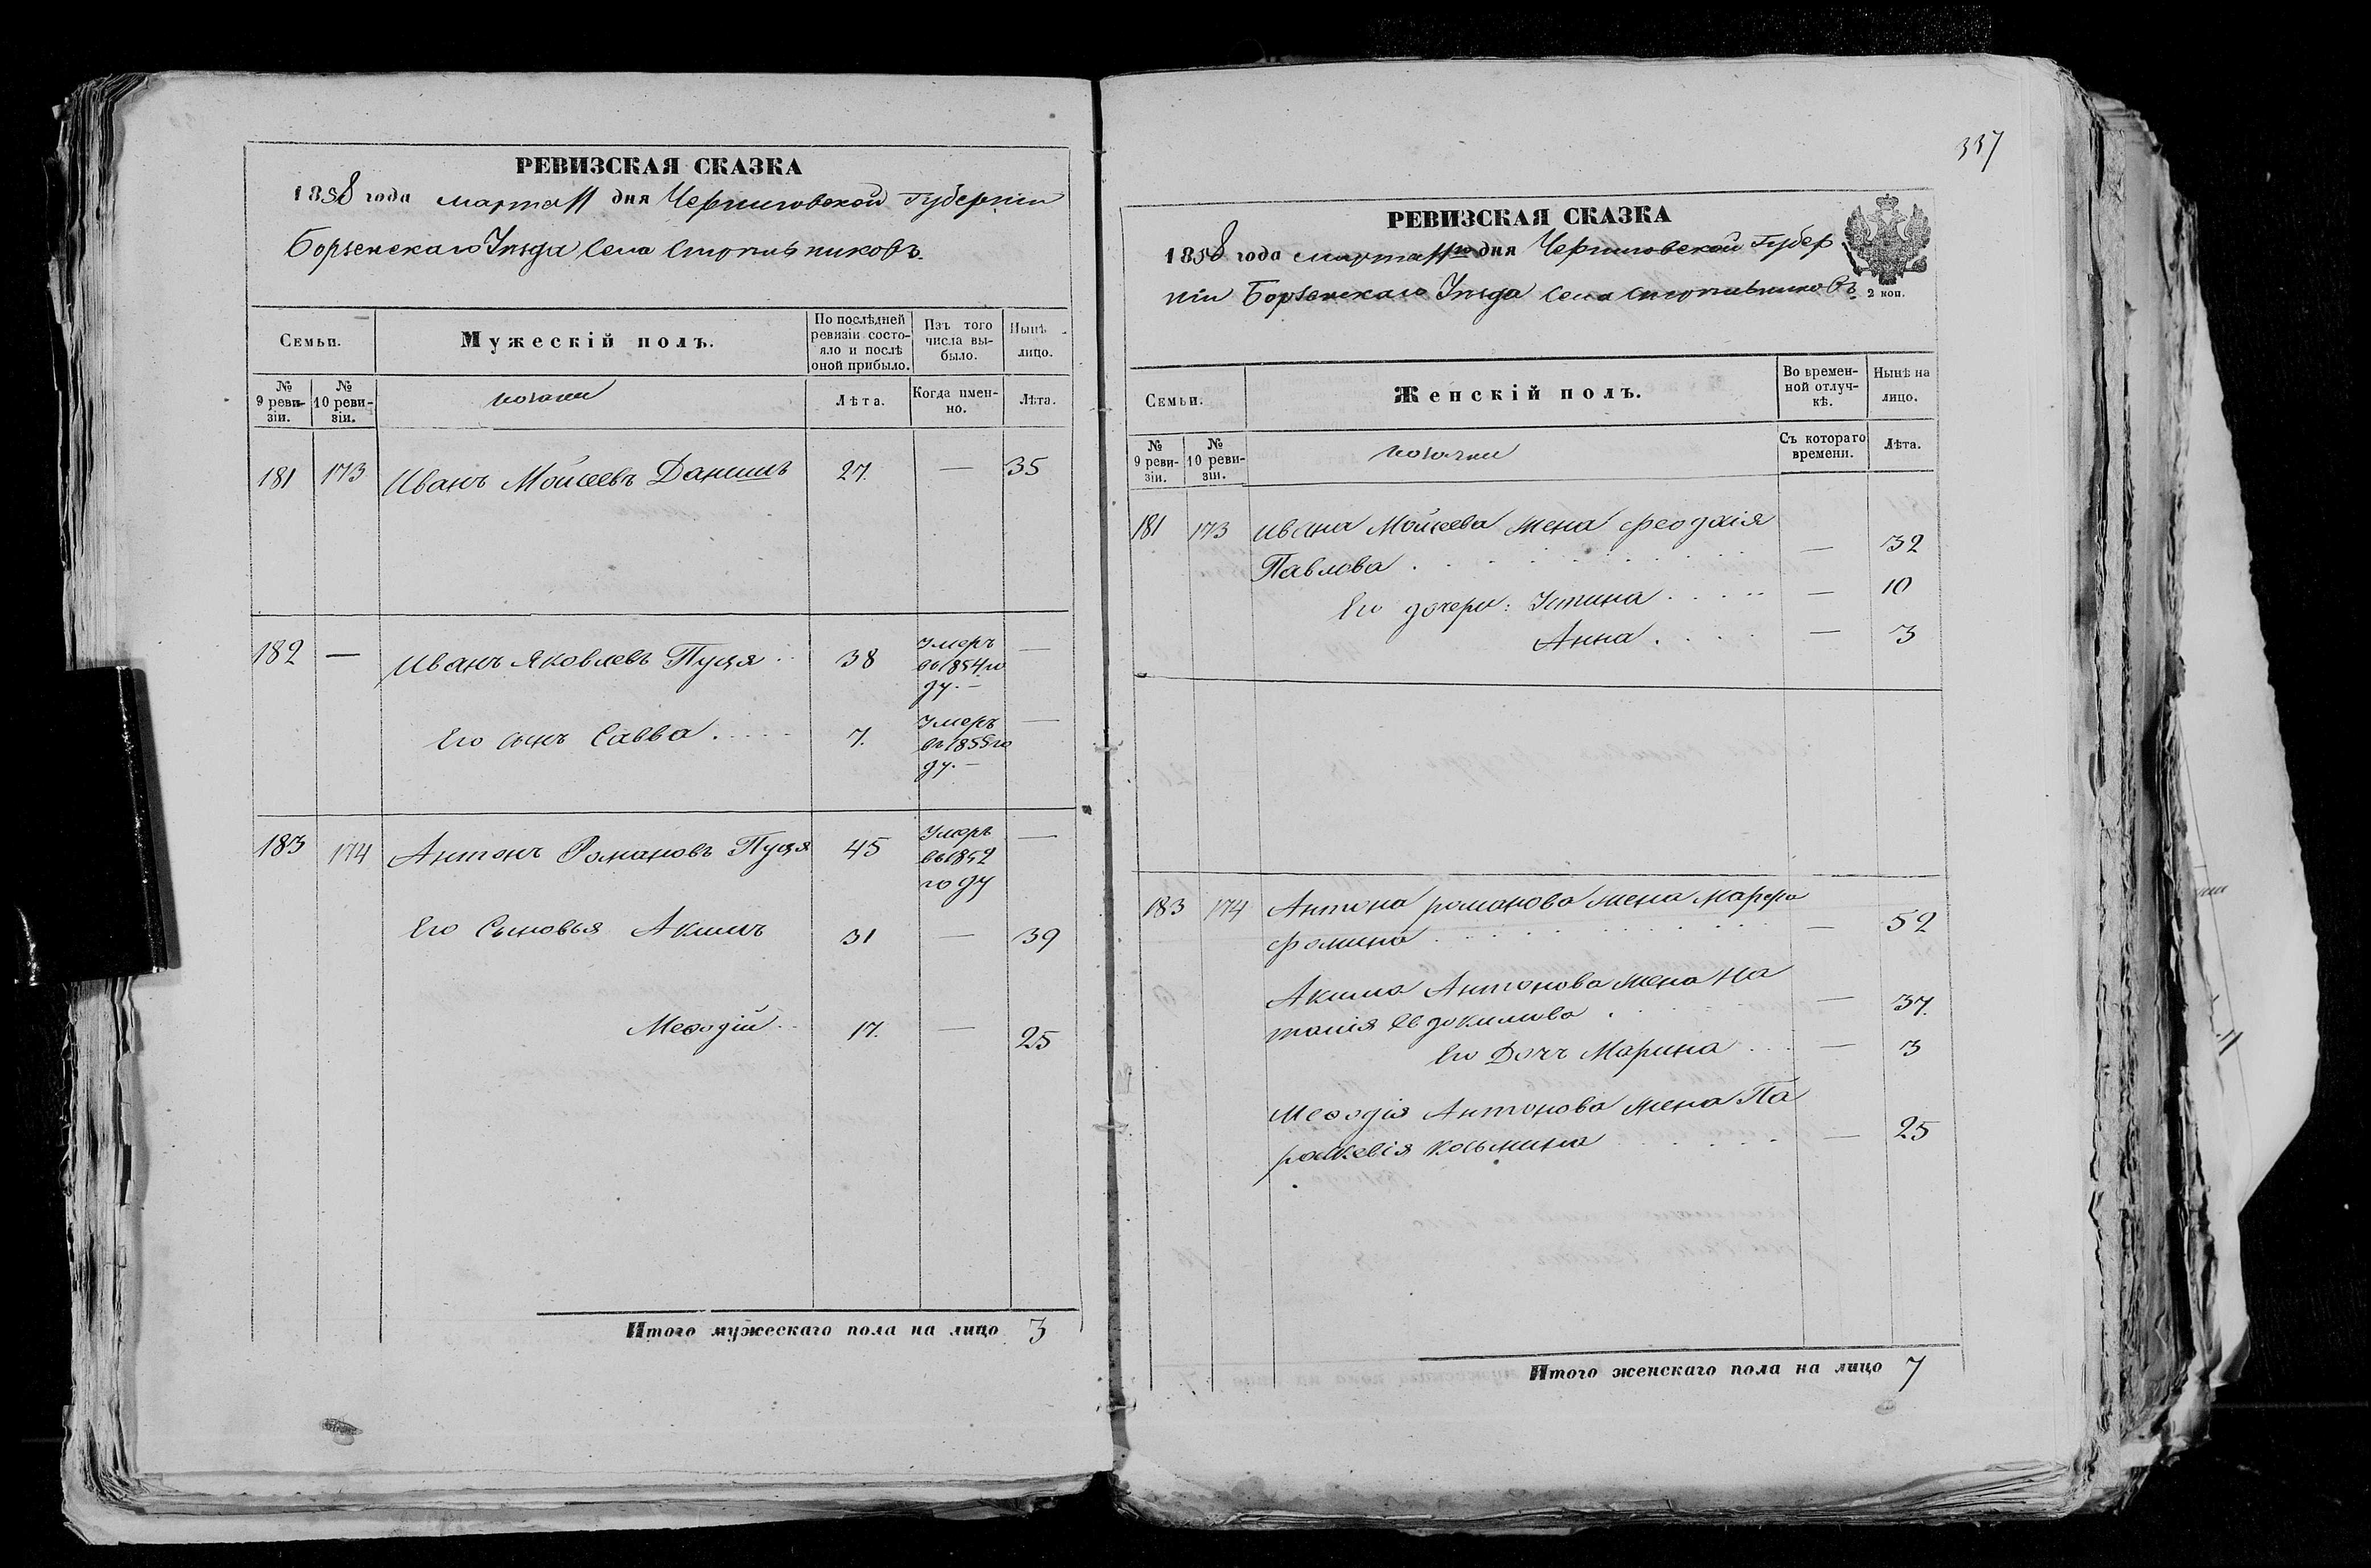 РЕВИЗСКАЯ СКАЗКА
1858 года марта 11 дня Черниговской Губерніи
Борзенскаго Уѣзда Села
Семьи.
Мужескій полъ.
По послѣдней ревизіи состояло и послѣ оной прибыло.
Изъ того числа выбыло.
Нынѣ лицо.
№ 9 ревизіи.
№ 10 ревизіи.
козаки
Лѣта.
Когда именно.
Лѣта.
181 173 Иванъ Мойсеевъ Данишъ 27. — 35
182 — Иванъ Яковлевъ Пуця 38 Умеръ въ 1854 году. — —
Его сынъ Савва 7. Умеръ въ 1855 году. — —
183 174 Антонъ Романовъ Пуця 45 Умеръ въ 1852 году —
Его Сыновья Акимъ 31 — 39
Меѳодій 17. — 25
Итого мужескаго пола на лицо 3
337
РЕВИЗСКАЯ СКАЗКА
1858 года марта 11го дня Черниговской Губер
ніи Борзенскаго Уѣзда Села
2 коп.
Семьи.
Женскій полъ.
Во временной отлучкѣ.
Нынѣ на лицо.
№ 9 ревизіи.
№ 10 ревизіи.
козачки
Съ котораго времени.
Лѣта.
181 173 Ивана Мойсеева жена
Павлова — 32
Его дочери: Устина — 10
Анна — 3
183 174 Антона романова жена Марфа
фомина — 52
Акима Антонова жена На
талія Евдокимова — 37.
Его Дочь Марина — 3
Меѳодія Антонова жена Па
раскевія Козьмина — 25
Итого женскаго пола на лицо 7